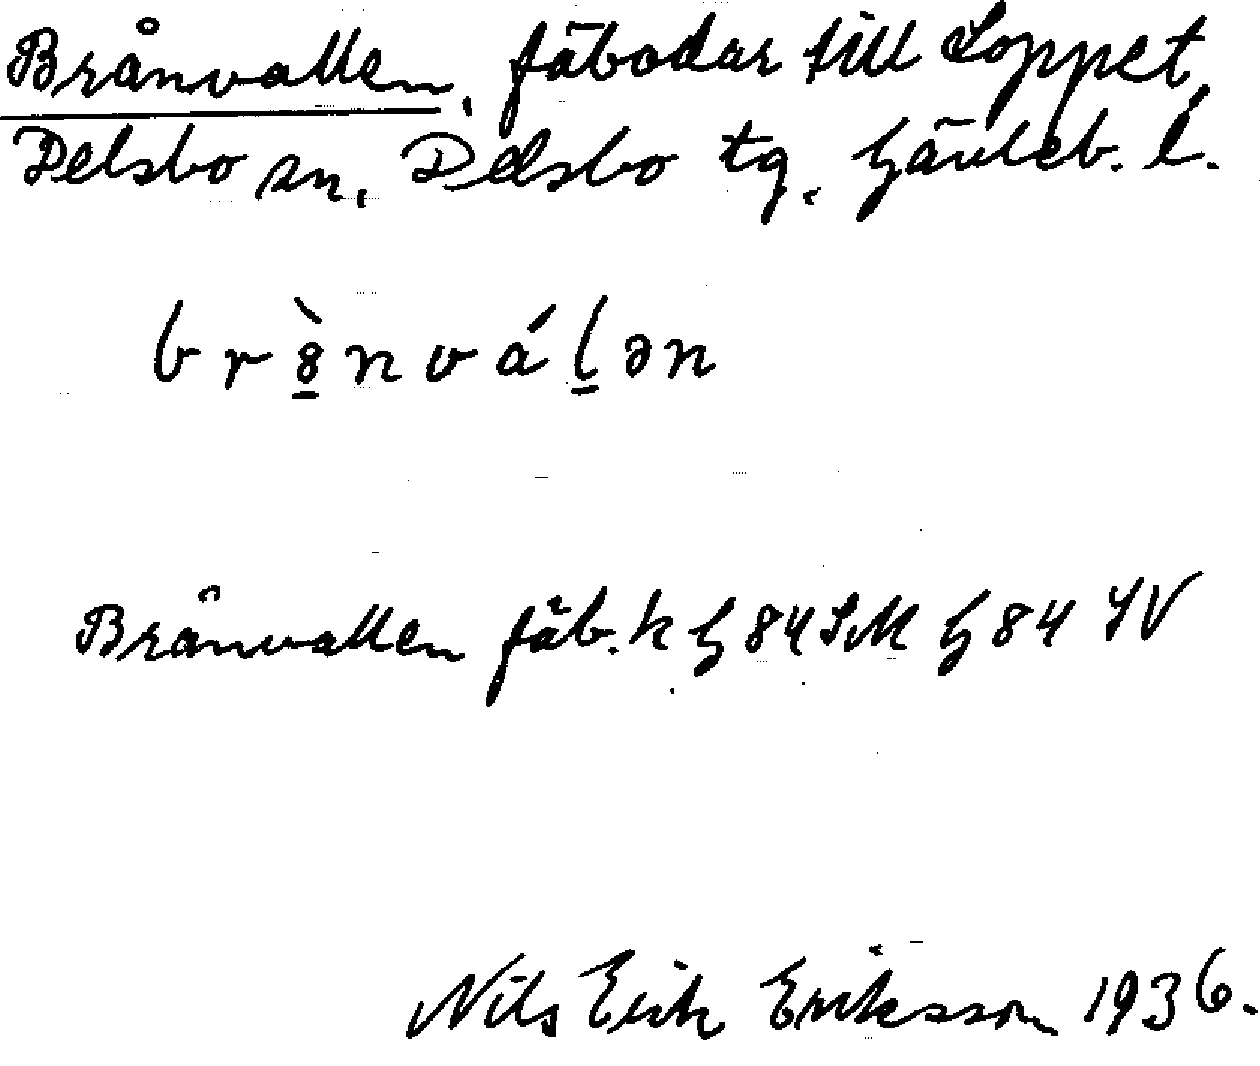 Brånvallen, fäbodar till Loppet,
Delsbo sn, Delsbo tg. Gävleb. l.
br8̲̀nválə̲n
Brånvallen fäb. k G 84 SM G 84 SV
Nils Erik Eriksson 1936.